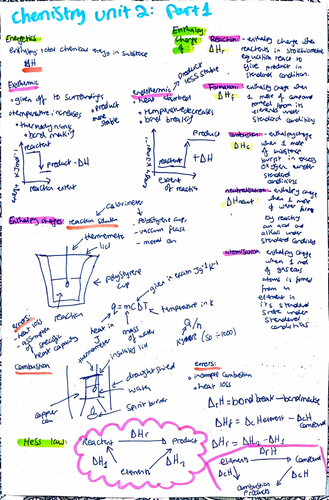 Chemistry unit 2: Part 1
Energetics
Enthalpy: total chemical energy in substance
ΔH
Exothermic
• given off to surroundings
• temperature increases
• bond making
• product more stable
reactant
product -ΔH
reaction extent
endothermic
product less stable
• heat absorbed
• temperature decreases
• bond breaking
product
reactant
+ΔH
extent of reaction
Enthalpy Change of
Reaction - enthalpy change when
ΔHr
reactants in stoichiometric
equation react to
give product in
standard condition.
Formation - enthalpy change
ΔHf
when 1 mole of compound
formed from its
elements under
standard condition
combustion - enthalpy change
ΔHc
when 1 mole
of substance
burnt in excess
of oxygen under
standard
conditions
neutralisation - enthalpy change
ΔHneut
when 1 mole
of water forms
by reacting
an acid and
alkali under
standard conditions
atomisation - enthalpy change
when 1 mol
of gaseous
atoms is formed
from an
element in
its standard
state under
standard
conditions
Enthalpy changes: reaction solution
calorimeter
• polystyrene cup
• vacuum flask
• metal can
thermometer
lid
polystyrene cup
reaction
errors:
• heat loss
• of specific
heat capacity
q = mcΔT
given in exam Jg⁻¹K⁻¹
temperature in K
heat in J
mass of
Q/n
(so ÷1000)
Combustion
thermometer
insulated lid
draught shield
water
spirit burner
copper can
errors:
• incomplete combustion
• heat loss
Hess law:
Reactant
ΔHr
Product
ΔH1
ΔH2
elements
ΔrH = bond break - bond make
ΔHf = ΔcH element - ΔcH compound
ΔHr = ΔH2 - ΔH1
ΔfH
elements
compound
ΔcH
ΔcH
combustion products